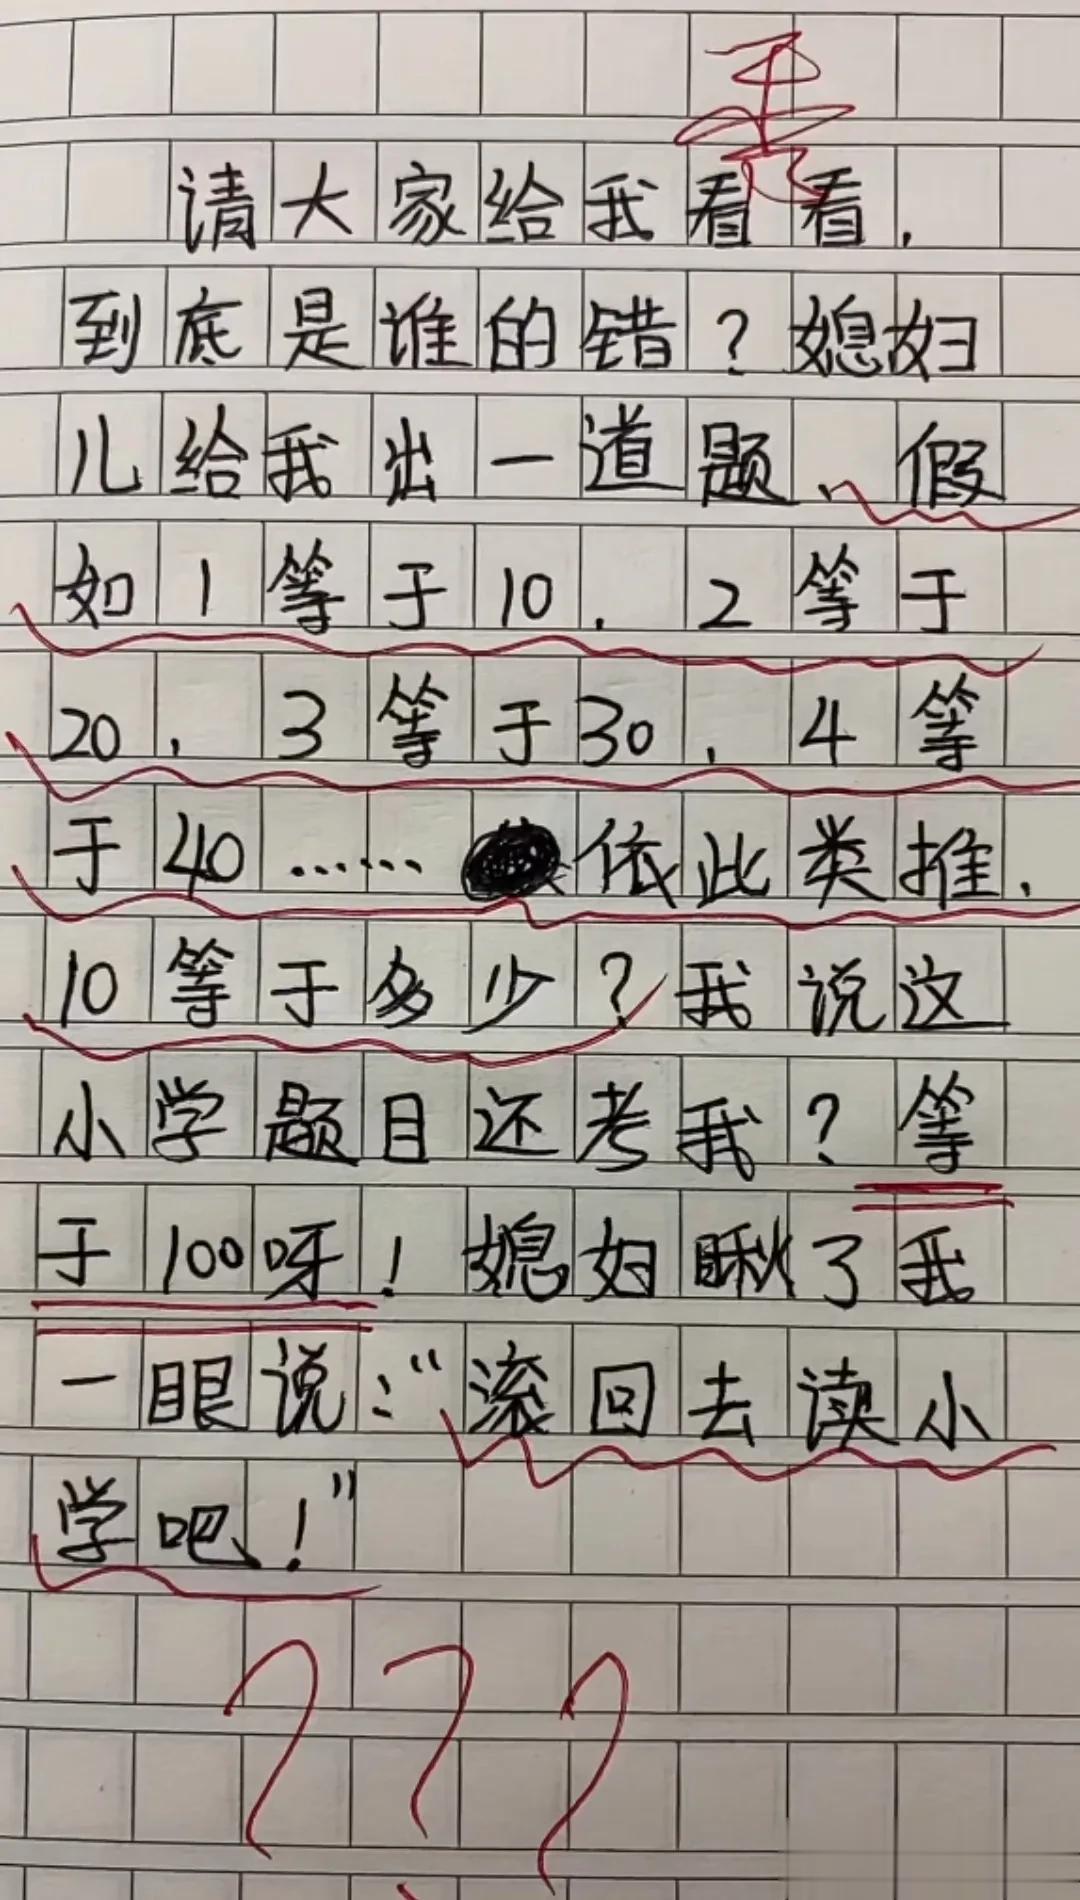 请大家给我看看,
到底是谁的错?媳妇
儿给我出一道题、假
如1等于10.2等于
20.3等于30.4等
于40……依此类推.
10等于多少?我说这
小学题目还考我?等
于100呀!媳妇瞅了我
一眼说:“滚回去读小
学吧!”
???